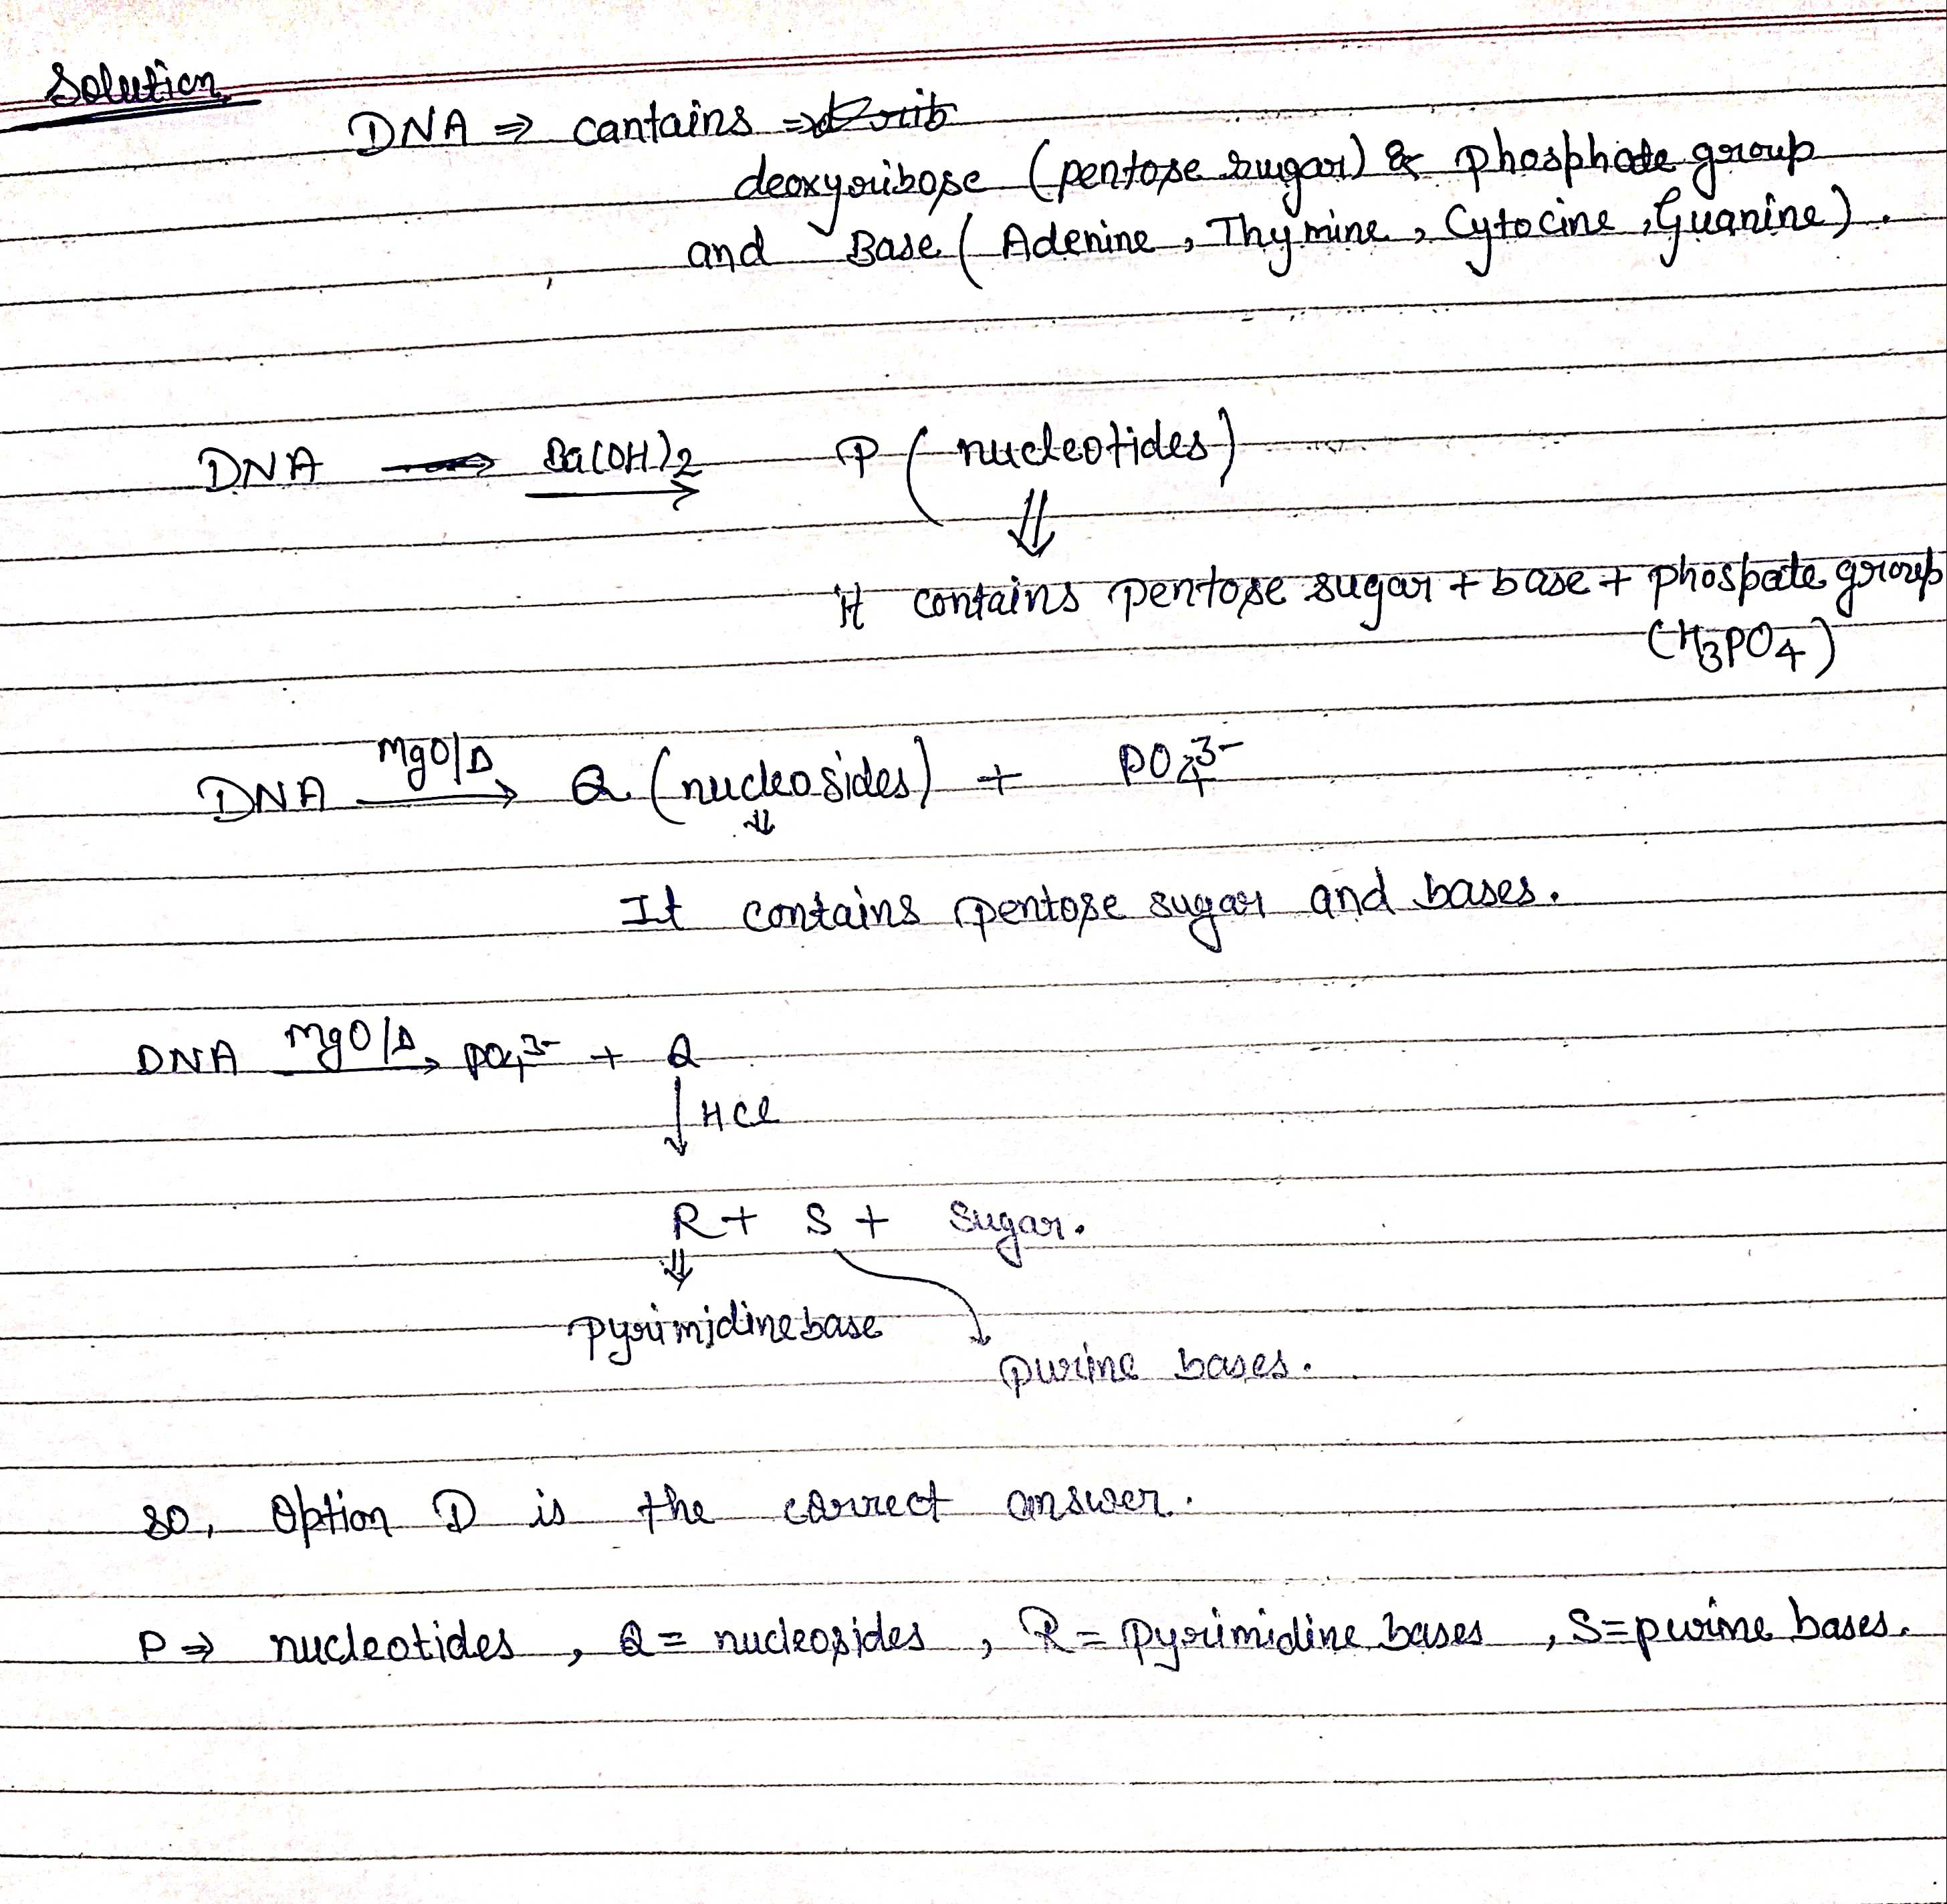 Solution
DNA ⇒ cantains ⇒
deoxyribose (pentose sugar) & phosphate group
and Base ( Adenine , Thymine , Cytocine , Guanine ) .
DNA Ba(OH)2 → P ( nucleotides )
⇓
it contains pentose sugar + base + phospate group
(H3PO4)
DNA MgO/Δ → Q ( nucleosides ) + PO4^3-
⇓
It contains pentose sugar and bases .
DNA MgO/Δ → PO4^3- + Q
↓ HCl
R + S + Sugar .
⇓
pyrimidine base
purine bases .
so , Option D is the correct answer .
P ⇒ nucleotides , Q = nucleosides , R = pyrimidine bases , S = purine bases .